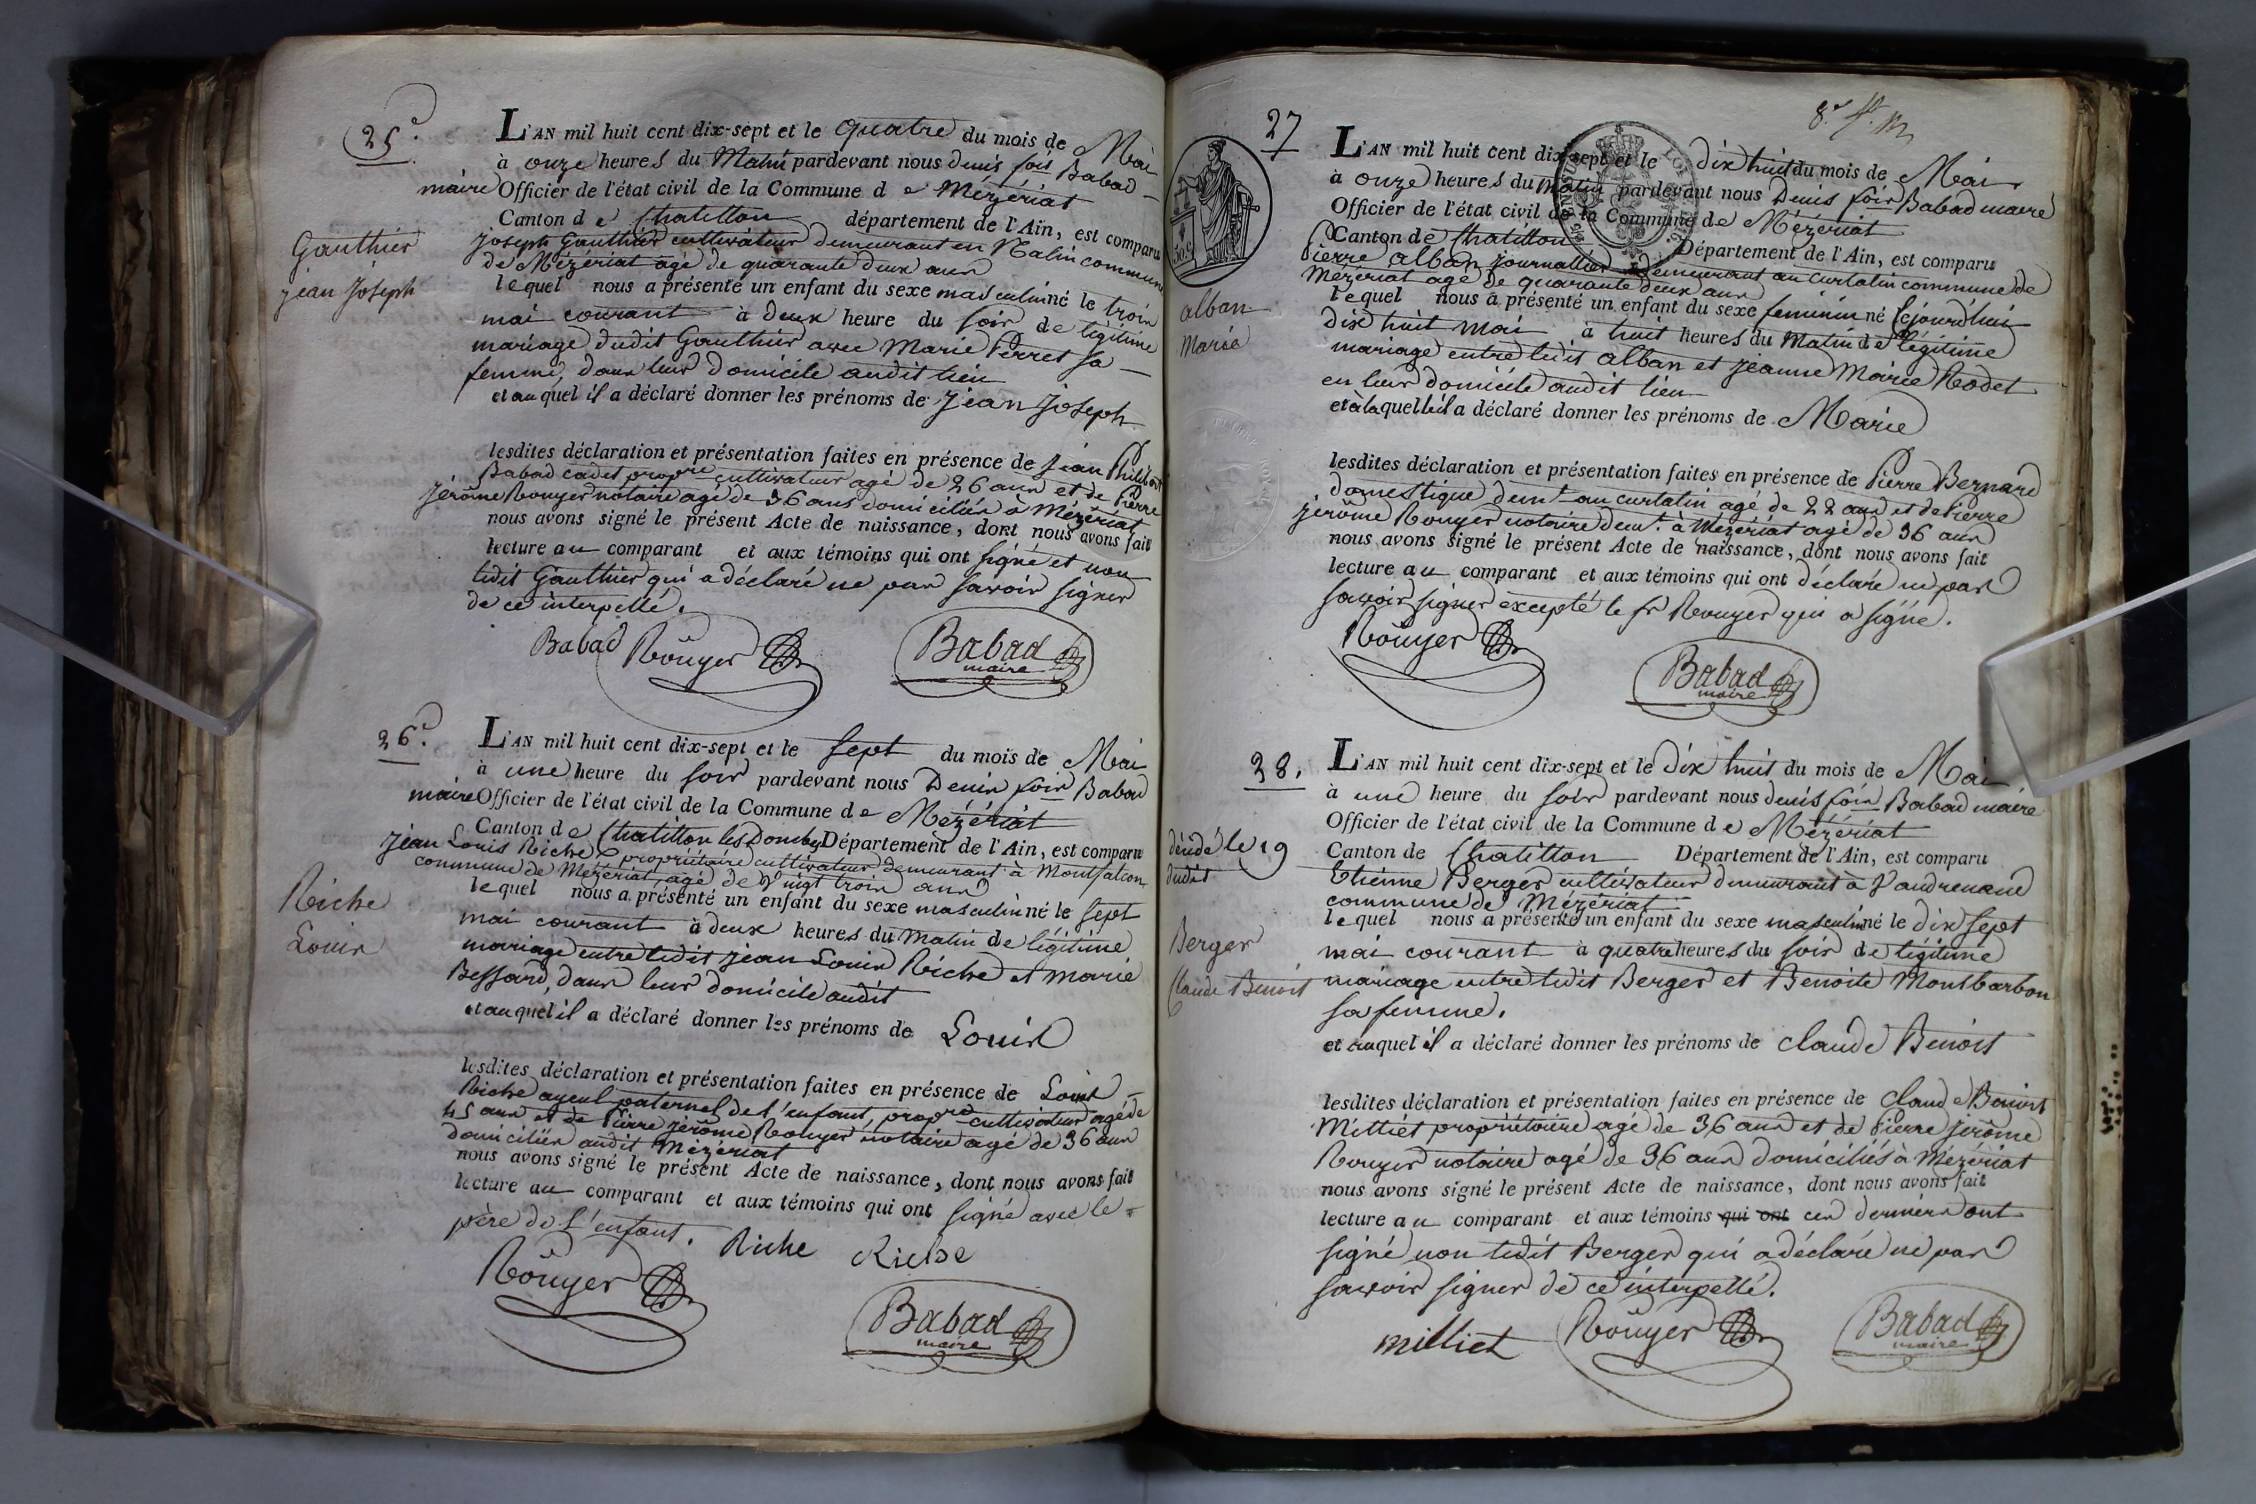 25.e
L'AN mil huit cent dix-sept et le quatre du mois de Mai
à onze heures du Matin pardevant nous denis foir Babad
maire Officier de l'état civil de la Commune de Mézériat
Canton de Chatillon département de l'Ain, est comparu
joseph Gauthier cultivateur demeurant en Malin commune
de Mézériat agé de quarante deux ans
Gauthier
jean joseph
lequel nous a présenté un enfant du sexe masculin né le trois
mai courant à deux heure du soir de légitime
mariage dudit Gauthier avec Marie Perret sa
femme, dans leur domicile audit lieu
et auquel il a déclaré donner les prénoms de jean joseph
lesdites déclaration et présentation faites en présence de jean Philibert
Babad cadet propre cultivateur agé de 26 ans et de Pierre
jérôme Rouyer notaire agé de 36 ans domiciliés à Mézériat
nous avons signé le présent Acte de naissance, dont nous avons fait
lecture au comparant et aux témoins qui ont signé et non
ledit Gauthier qui a déclaré ne pas savoir signer
de ce interpellé.
Babad Rouyer Babad
maire
26.e
L'AN mil huit cent dix-sept et le sept du mois de Mai
à une heure du soir pardevant nous Denis foir Babad
maire Officier de l'état civil de la Commune de Mézériat
Canton de Chatillon les Dombes Département de l'Ain, est comparu
jean Louis Riche propriétaire cultivateur demeurant à Montfalcon
commune de Mézériat, agé de vingt trois ans
Riche
Louis
lequel nous a présenté un enfant du sexe masculin né le sept
mai courant à deux heures du Matin de légitime
mariage entre ledit jean Louis Riche et marie
Bessard, dans leur domicile audit
et auquel il a déclaré donner les prénoms de Louis
lesdites déclaration et présentation faites en présence de Louis
Riche ayeul paternel de l'enfant, propre cultivateur agé de
45 ans et de Pierre jérôme Rouyer notaire agé de 36 ans
domiciliés audit Mézériat
nous avons signé le présent Acte de naissance, dont nous avons fait
lecture au comparant et aux témoins qui ont signé avec le
père de l'enfant. Riche Riche
Rouyer
Babad
maire
8.e
27
L'AN mil huit cent dix-sept et le dix huit du mois de Mai
à onze heures du Matin pardevant nous Denis foir Babad maire
Officier de l'état civil de la Commune de Mézériat
Canton de Chatillon Département de l'Ain, est comparu
Pierre alban journallier demeurant au curtalin commune de
Mézériat agé de quarante deux ans
alban
Marie
lequel nous a présenté un enfant du sexe féminin né cejourd'hui
dix huit mai à huit heures du Matin de légitime
mariage entre ledit alban et jeanne Marie Rodet
en leur domicile audit lieu
et à laquelle il a déclaré donner les prénoms de Marie
lesdites déclaration et présentation faites en présence de Pierre Bernard
domestique demt. au curtalin agé de 22 ans et de Pierre
jérôme Rouyer notaire demt. à Mézériat agé de 36 ans
nous avons signé le présent Acte de naissance, dont nous avons fait
lecture au comparant et aux témoins qui ont déclaré ne pas
savoir signer excepté le sr Rouyer qui a signé.
Rouyer
Babad
maire
28.
L'AN mil huit cent dix-sept et le dix huit du mois de Mai
à une heure du soir pardevant nous denis foir Babad maire
Officier de l'état civil de la Commune de Mézériat
décédé le 19
dudit
Canton de Chatillon Département de l'Ain, est comparu
Etienne Berger cultivateur demeurant à Vaudrenand
commune de Mézériat
lequel nous a présenté un enfant du sexe masculin né le dix sept
Berger
Claude Benoit
mai courant à quatre heures du soir de légitime
mariage entre ledit Berger et Benoite Montbarbon
sa femme.
et auquel il a déclaré donner les prénoms de claude Benoit
lesdites déclaration et présentation faites en présence de claude Benoit
Milliet propriétaire agé de 36 ans et de Pierre jérôme
Rouyer notaire agé de 36 ans domiciliés à Mézériat
nous avons signé le présent Acte de naissance, dont nous avons fait
lecture au comparant et aux témoins qui ont ces derniers ont
signé non ledit Berger qui a déclaré ne pas
savoir signer de ce interpellé.
milliet Rouyer Babad
maire